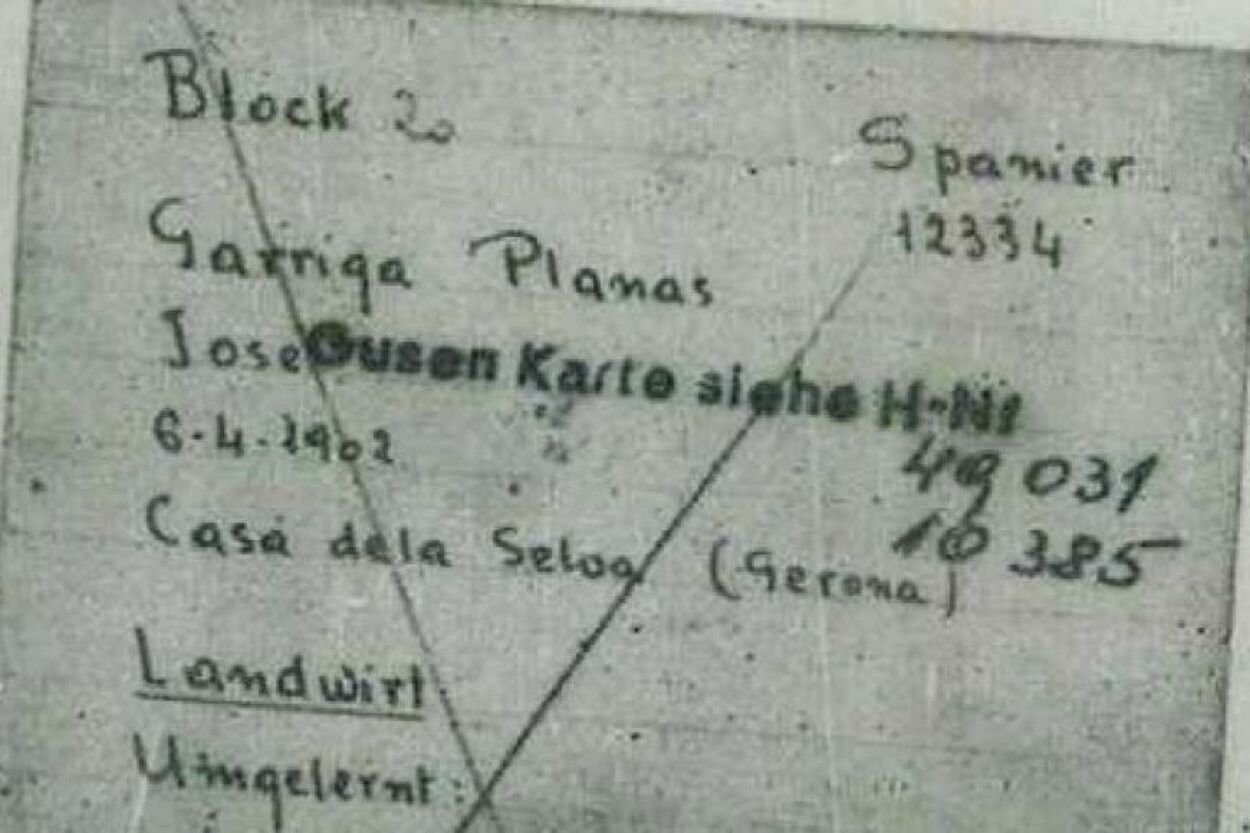 Block 20
Spanier
12334
Garriga Planas
Jose Gusen Karte siehe H-Nr
6-4-1902
49 031
Casá dela Seloa (Gerona)
10 385
Landwirt
Umgelernt: